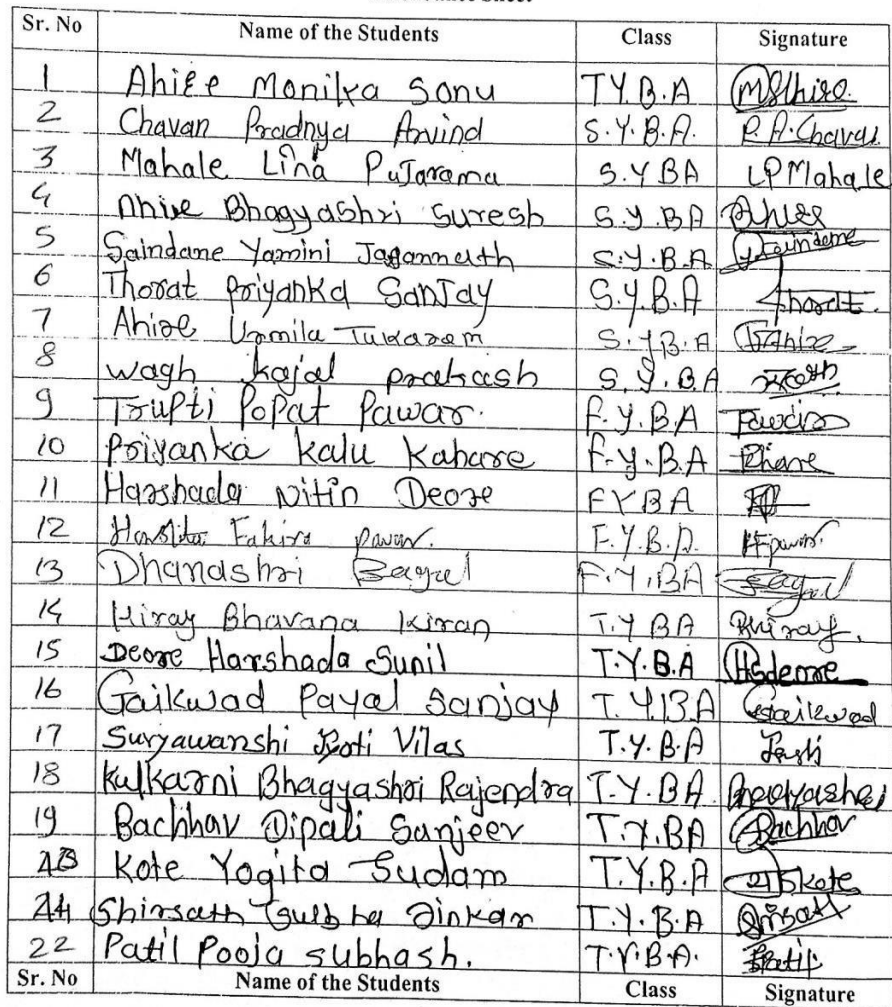 Sr. No Name of the Students Class Signature
1 Ahire Monika Sonu T.Y.B.A MSAhire
2 Chavan Pradnya Arvind S.Y.B.A. P.A.Chavan
3 Mahale Lina PuJarama S.Y BA LPMahale
4 Ahire Bhagyashri Suresh S.Y.BA Ahire
5 Saindane Yamini Jagannath S.Y.B.A YSaindane
6 Thorat Priyanka SanJay S.Y.B.A Thorat
7 Ahire Urmila Tukaram S.Y.B.A
8 wagh kajal prakash S.Y.B.A
9 Trupti Popat Pawar. F.Y.B.A
10 Priyanka kalu Kahare F.Y.B.A
11 Harshada Nitin Deore FYBA
12 Fakira Pawar. F.Y.B.A. HFpawar.
13 Dhanashri Bagul F.Y.BA Bagul
14 Hiray Bhavana kiran T.Y BA Bhiray.
15 Deore Harshada Sunil T.Y.B.A HSdeore
16 Gaikwad Payal Sanjay T.Y.B.A Gaikwad
17 Suryawanshi Jyoti Vilas T.Y.B.A
18 Kulkarni Bhagyashri Rajendra T.Y.BA Bhagyashri
19 Bachhav Dipali Sanjeev T.Y.BA Bachhav
Kote Yogita Sudam T.Y.B.A
Shirsath Dinkar T.Y.B.A
22 Patil Pooja subhash. T.Y.B.A. Patil
Sr. No Name of the Students Class Signature